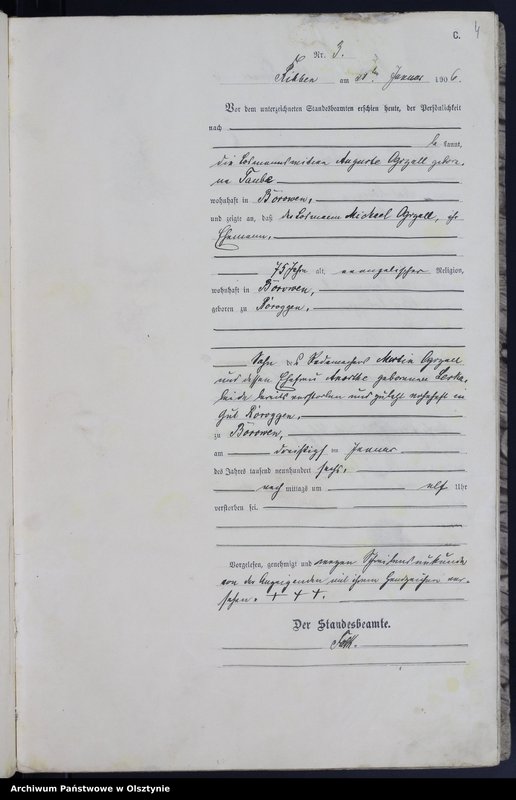 C. 4
Nr. 3.
Ribben am Januar 1906.
Vor dem unterzeichneten Standesbeamten erschien heute, der Persönlichkeit
nach
be kannt,
die Losmannswitwe Auguste Ogrzall gebore-
ne Taube
wohnhaft in Borowen,
und zeigte an, daß der Losmann Michael Ogrzall, ihr
Ehemann,
75 Jahre alt, evangelischer Religion,
wohnhaft in Borowen,
geboren zu
Sohn des Martin Ogrzall
und dessen Ehefrau geborenen
beide bereits verstorben und zuletzt wohnhaft in
Gut
zu Borowen,
am dreißigsten Januar
des Jahres tausend neunhundert sechs,
nach mittags um elf Uhr
verstorben sei.
Vorgelesen, genehmigt und wegen Schreibensunkunde
von der Anzeigenden mit ihrem Handzeichen ver-
sehen. + + +.
Der Standesbeamte.